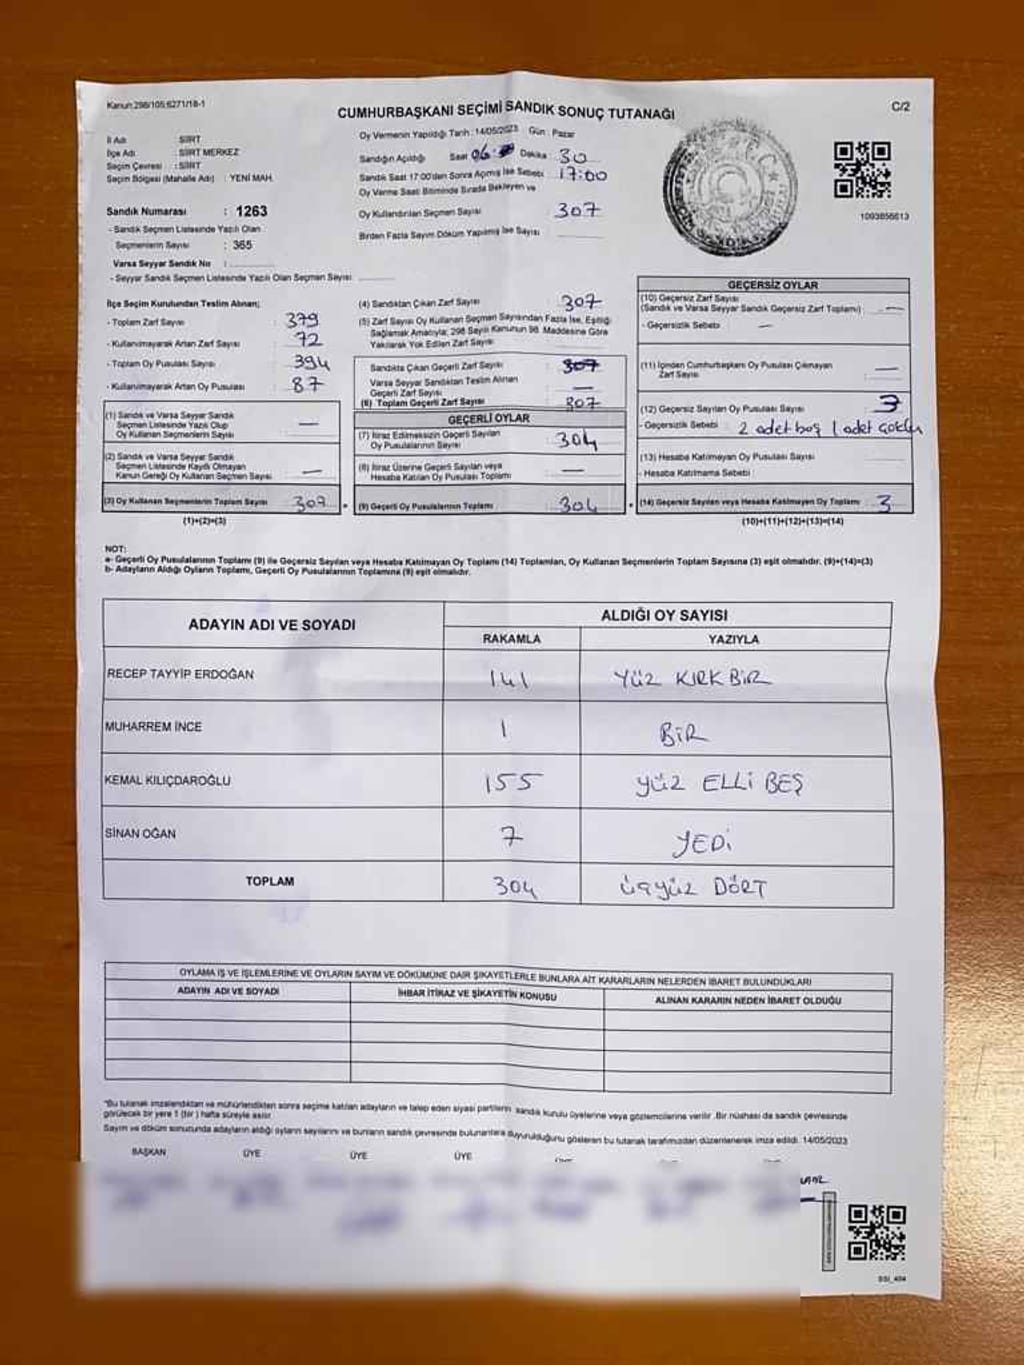 Kanun:298/105;6271/18-1
CUMHURBAŞKANI SEÇİMİ SANDIK SONUÇ TUTANAĞI
C/2
İl Adı : SİİRT
İlçe Adı : SİİRT MERKEZ
Seçim Çevresi : SİİRT
Seçim Bölgesi (Mahalle Adı) : YENİ MAH.
Sandık Numarası : 1263
- Sandık Seçmen Listesinde Yazılı Olan
Seçmenlerin Sayısı : 365
Varsa Seyyar Sandık No :
- Seyyar Sandık Seçmen Listesinde Yazılı Olan Seçmen Sayısı:
Oy Vermenin Yapıldığı Tarih : 14/05/2023 Gün : Pazar
Sandığın Açıldığı Saat 06: Dakika : 30
Sandık Saat 17:00'den Sonra Açılmış İse Sebebi : 17:00
Oy Verme Saati Bitiminde Sırada Bekleyen ve
Oy Kullandırılan Seçmen Sayısı : 307
Birden Fazla Sayım Döküm Yapılmış İse Sayısı :
1093856613
İlçe Seçim Kurulundan Teslim Alınan;
- Toplam Zarf Sayısı : 379
- Kullanılmayarak Artan Zarf Sayısı : 72
- Toplam Oy Pusulası Sayısı : 394
- Kullanılmayarak Artan Oy Pusulası : 87
(1) Sandık ve Varsa Seyyar Sandık
Seçmen Listesinde Yazılı Olup
Oy Kullanan Seçmenlerin Sayısı : —
(2) Sandık ve Varsa Seyyar Sandık
Seçmen Listesinde Kayıtlı Olmayan
Kanun Gereği Oy Kullanan Seçmen Sayısı : —
(3) Oy Kullanan Seçmenlerin Toplam Sayısı : 307
(1)+(2)=(3)
(4) Sandıktan Çıkan Zarf Sayısı : 307
(5) Zarf Sayısı Oy Kullanan Seçmen Sayısından Fazla İse, Eşitliği
Sağlamak Amacıyla; 298 Sayılı Kanunun 98. Maddesine Göre
Yakılarak Yok Edilen Zarf Sayısı :
Sandıkta Çıkan Geçerli Zarf Sayısı : 307
Varsa Seyyar Sandıktan Teslim Alınan
Geçerli Zarf Sayısı : —
(6) Toplam Geçerli Zarf Sayısı : 307
GEÇERLİ OYLAR
(7) İtiraz Edilmeksizin Geçerli Sayılan
Oy Pusulalarının Sayısı : 304
(8) İtiraz Üzerine Geçerli Sayılan veya
Hesaba Katılan Oy Pusulası Toplamı : —
(9) Geçerli Oy Pusulalarının Toplamı : 304
GEÇERSİZ OYLAR
(10) Geçersiz Zarf Sayısı
(Sandık ve Varsa Seyyar Sandık Geçersiz Zarf Toplamı) : —
- Geçersizlik Sebebi : —
(11) İçinden Cumhurbaşkanı Oy Pusulası Çıkmayan
Zarf Sayısı : —
(12) Geçersiz Sayılan Oy Pusulası Sayısı : 3
- Geçersizlik Sebebi : 2 adet boş 1 adet çoklu
(13) Hesaba Katılmayan Oy Pusulası Sayısı :
- Hesaba Katılmama Sebebi :
(14) Geçersiz Sayılan veya Hesaba Katılmayan Oy Toplamı : 3
(10)+(11)+(12)+(13)=(14)
NOT:
a- Geçerli Oy Pusulalarının Toplamı (9) ile Geçersiz Sayılan veya Hesaba Katılmayan Oy Toplamı (14) Toplamları, Oy Kullanan Seçmenlerin Toplam Sayısına (3) eşit olmalıdır. (9)+(14)=(3)
b- Adayların Aldığı Oyların Toplamı, Geçerli Oy Pusulalarının Toplamına (9) eşit olmalıdır.
ADAYIN ADI VE SOYADI
ALDIĞI OY SAYISI
RAKAMLA YAZIYLA
RECEP TAYYİP ERDOĞAN 141 YÜZ KIRK BİR
MUHARREM İNCE 1 BİR
KEMAL KILIÇDAROĞLU 155 YÜZ ELLİ BEŞ
SİNAN OĞAN 7 YEDİ
TOPLAM 304 üçyüz DÖRT
OYLAMA İŞ VE İŞLEMLERİNE VE OYLARIN SAYIM VE DÖKÜMÜNE DAİR ŞİKAYETLERLE BUNLARA AİT KARARLARIN NELERDEN İBARET BULUNDUKLARI
ADAYIN ADI VE SOYADI İHBAR İTİRAZ VE ŞİKAYETİN KONUSU ALINAN KARARIN NEDEN İBARET OLDUĞU
*Bu tutanak imzalandıktan ve mühürlendikten sonra seçime katılan adayların ve talep eden siyasi partilerin sandık kurulu üyelerine veya gözlemcilerine verilir. Bir nüshası da sandık çevresinde
görülecek bir yere 1 (bir) hafta süreyle asılır.
Sayım ve döküm sonucunda adayların aldığı oyların sayılarını ve bunların sandık çevresinde bulunanlara duyurulduğunu gösteren bu tutanak tarafımızdan düzenlenerek imza edildi. 14/05/2023
BAŞKAN ÜYE ÜYE ÜYE
SSI_404